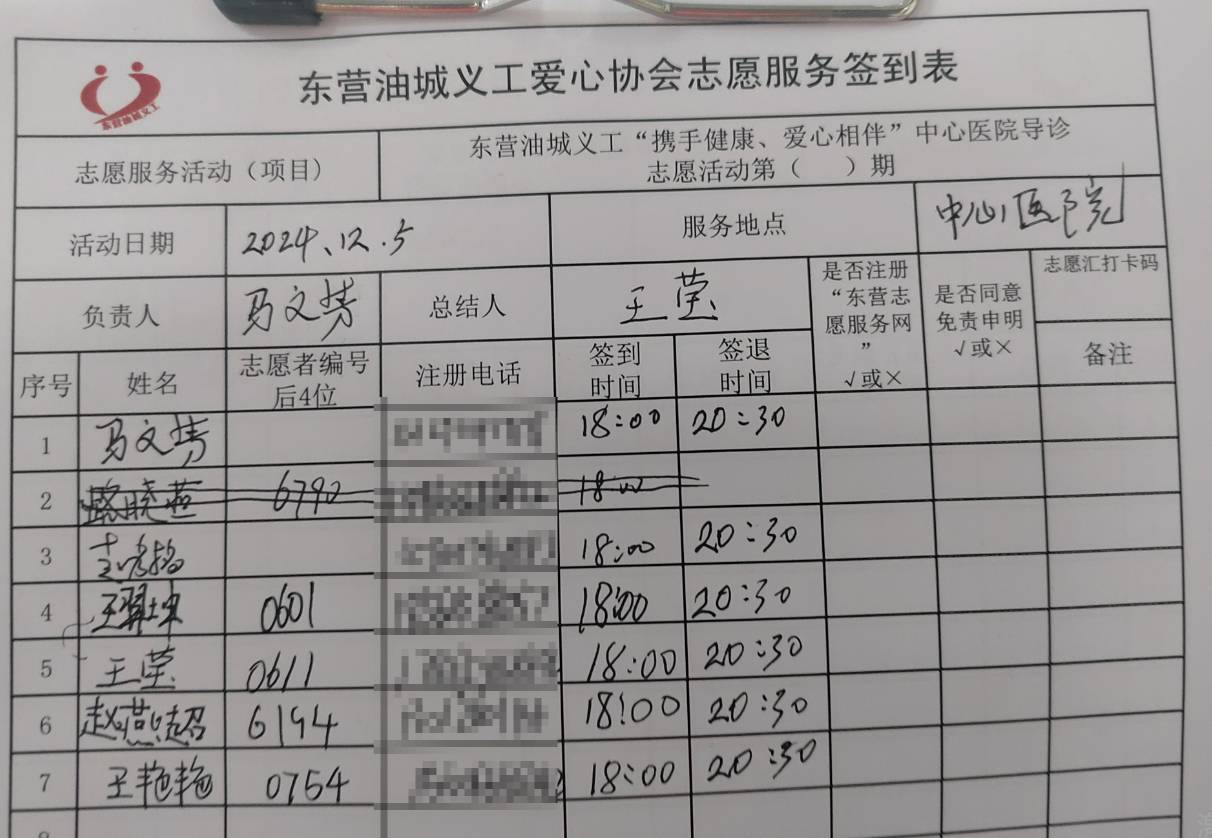 东营油城义工
东营油城义工爱心协会志愿服务签到表
志愿服务活动（项目）
东营油城义工“携手健康、爱心相伴”中心医院导诊
志愿活动第（ ）期
活动日期 2024.12.5 服务地点 中心医院
负责人 马文婧 总结人 王莹
是否注册
“东营志
愿服务网
”
√或×
是否同意
免责申明
√或×
志愿汇打卡码
备注
序号 姓名
志愿者编号
后4位
注册电话
签到
时间
签退
时间
1 马文婧 18:00 20:30
2 路晓燕 6790 18:00
3 18:00 20:30
4 0601 18:00 20:30
5 王莹 0611 18:00 20:30
6 赵燕超 6194 18:00 20:30
7 王艳艳 0754 18:00 20:30